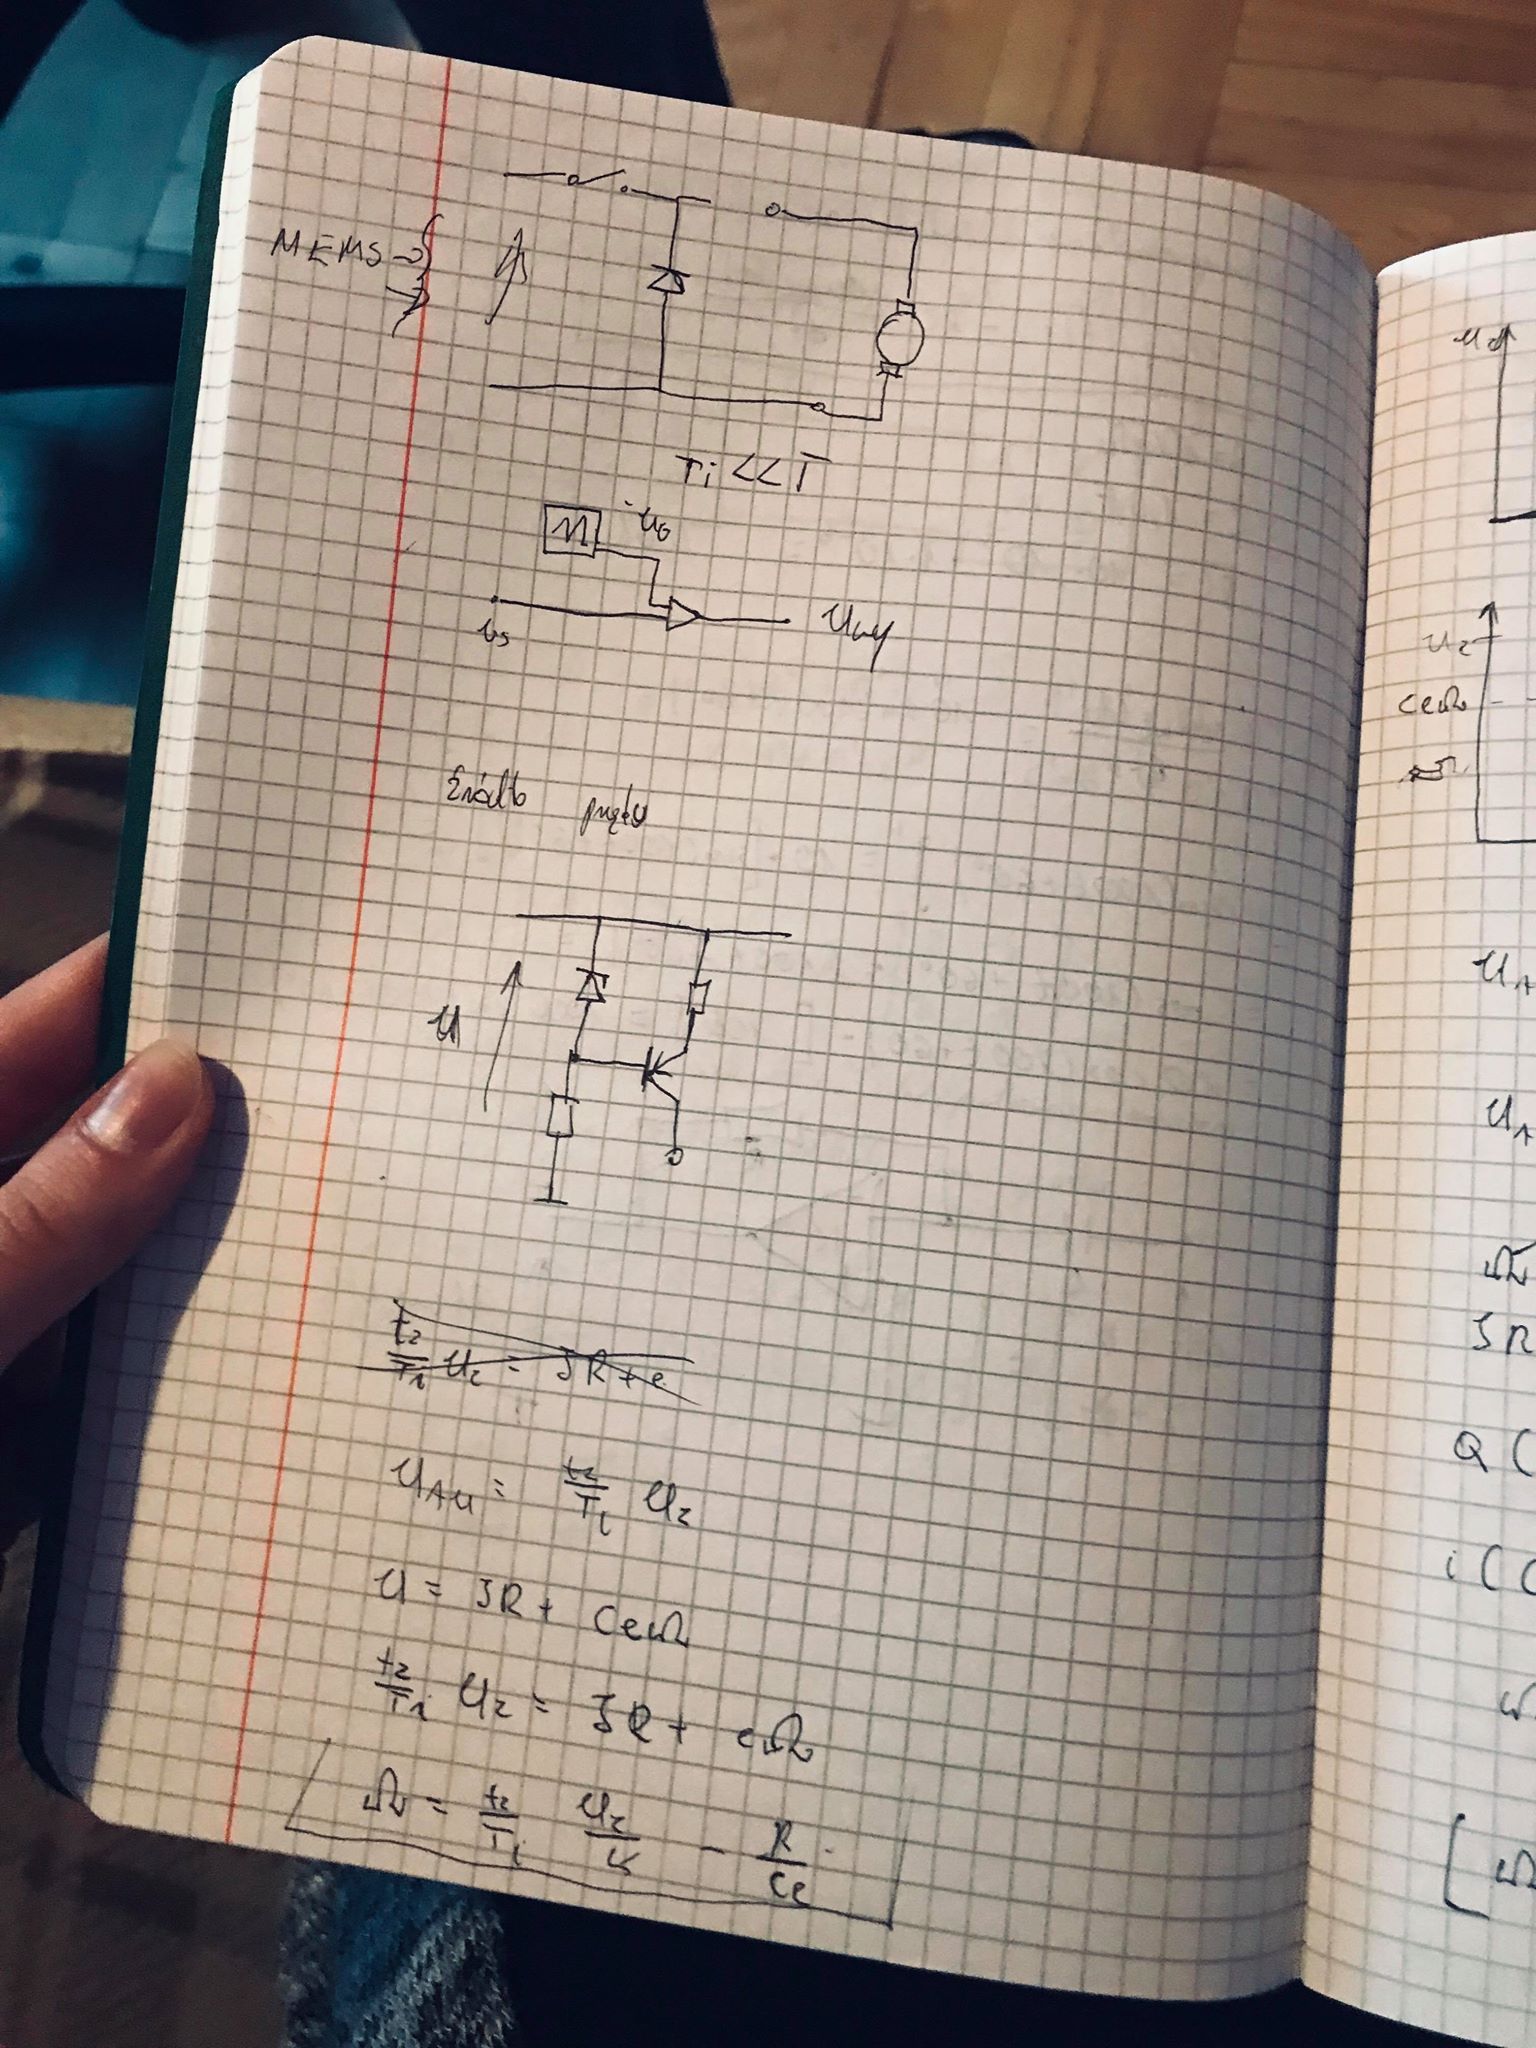 MEMS
Ti << T
uG
us
Uwy
Źródło prądu
U
t2/Ti Uz = JR + e
UAU = t2/Ti Uz
U = JR + CeΩ
t2/Ti Uz = JR + eΩ
Ω = t2/Ti Uz/K - R/Ce
Uz
CeΩ
UA
UA
Ω
JR
Q (
i (